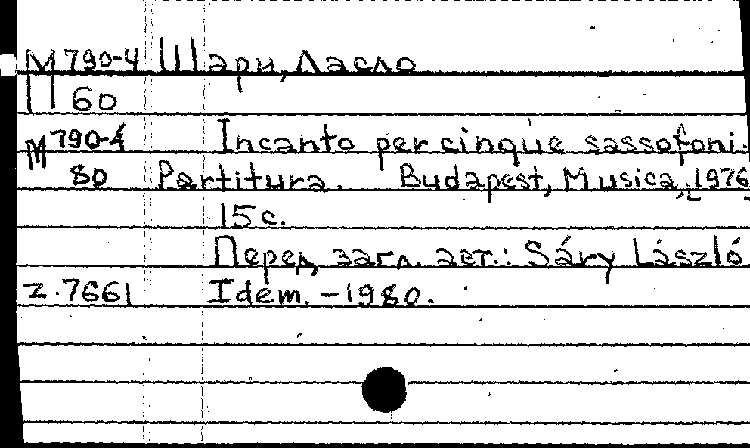 М 790-4 Шари, Ласло
60
М 790-4 Incanto per cinque sassofoni.
80 Partitura. Budapest, Musica, [1976]
15 с.
Перед загл. авт.: Sáry László
z.7661 Idem. – 1980.